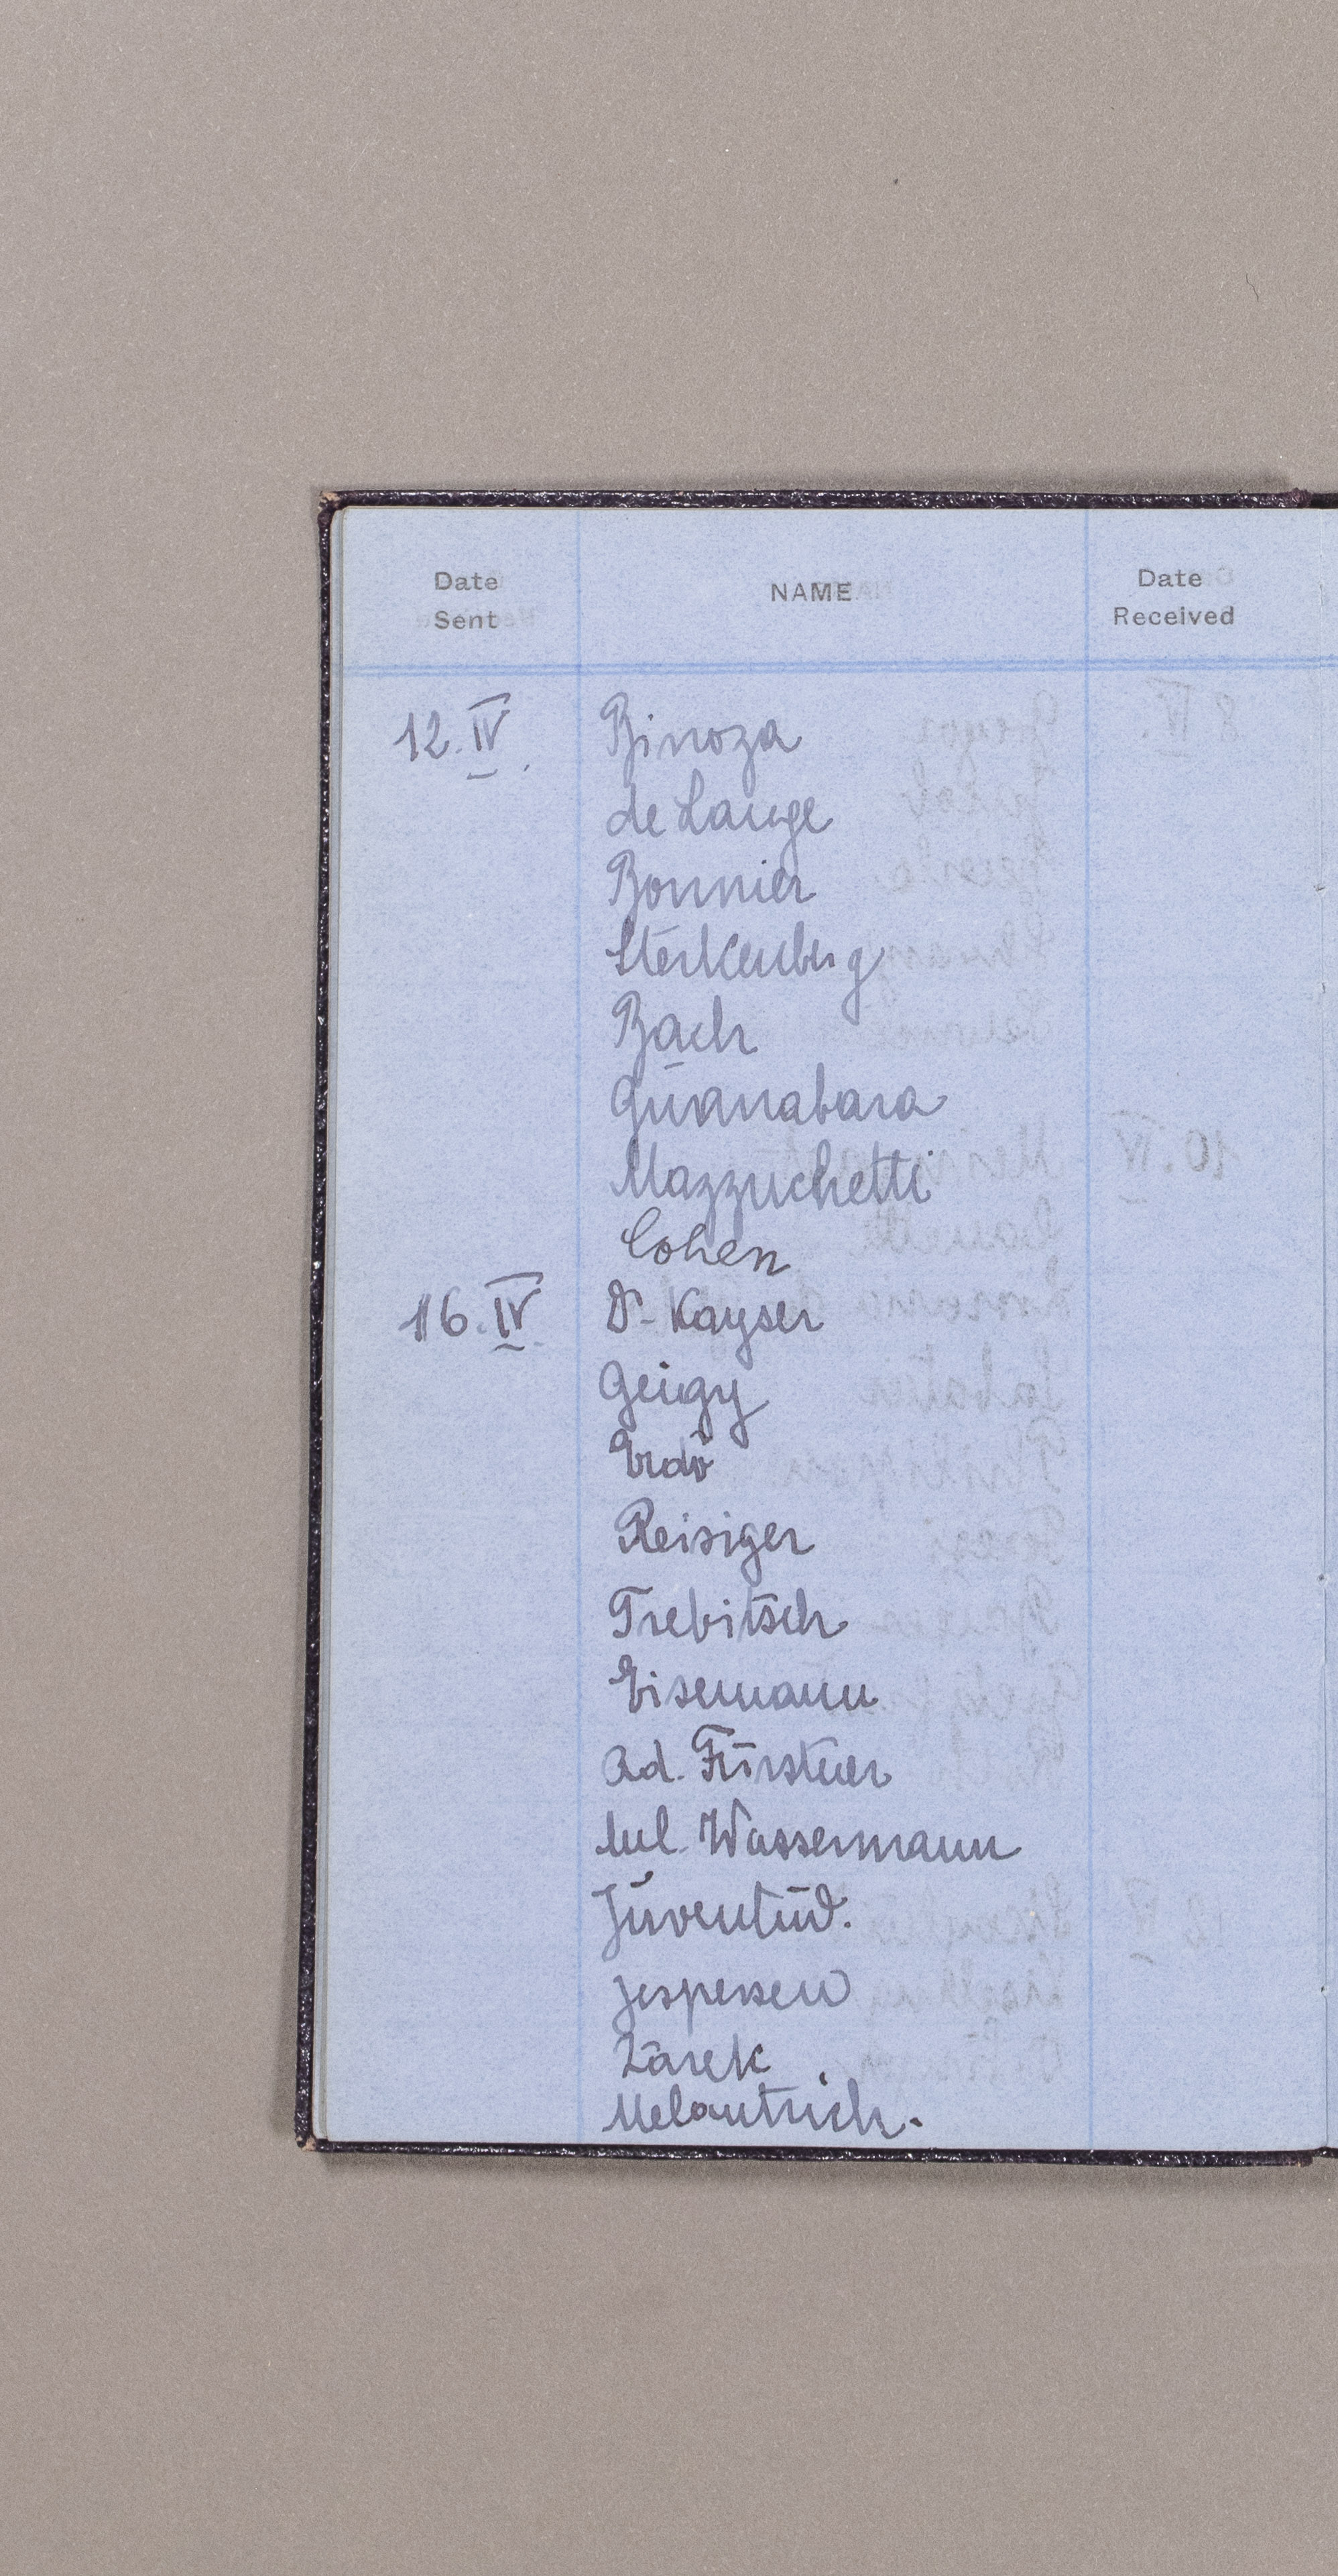 Date Sent NAME Date Received
12.IV. Binoza
de Lange
Bonnier
Sterkenberg
Bach
Guanabara
Mazzuchetti
Cohen
16.IV. Dr. Kayser
Geigy
Erdö
Reisiger
Trebitsch
Eisemann
Ad. Fürstner
Lul. Wassermann
Juventud.
Jespersen
Zarek
Melantrich.